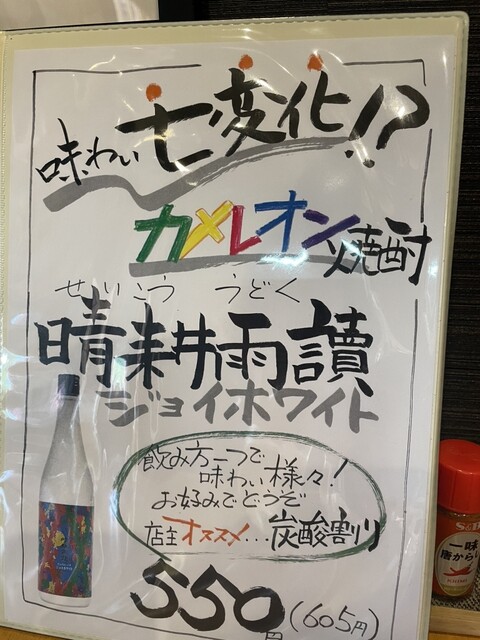 味わい七変化!?
カメレオン焼酎
せいこう うどく
晴耕雨讀
ジョイホワイト
飲み方一つで
味わい様々!
お好みでどうぞ
店主オススメ...炭酸割り
550円(605円)
S&B
一味
唐がらし